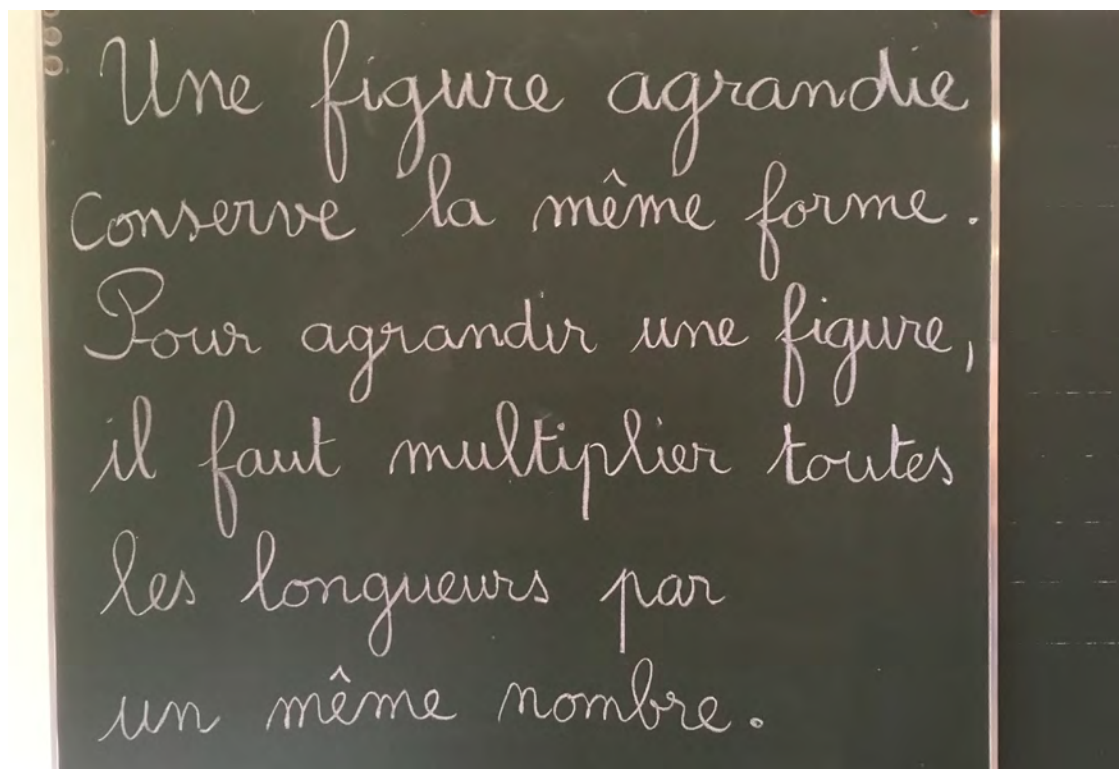 Une figure agrandie
conserve la même forme.
Pour agrandir une figure,
il faut multiplier toutes
les longueurs par
un même nombre.